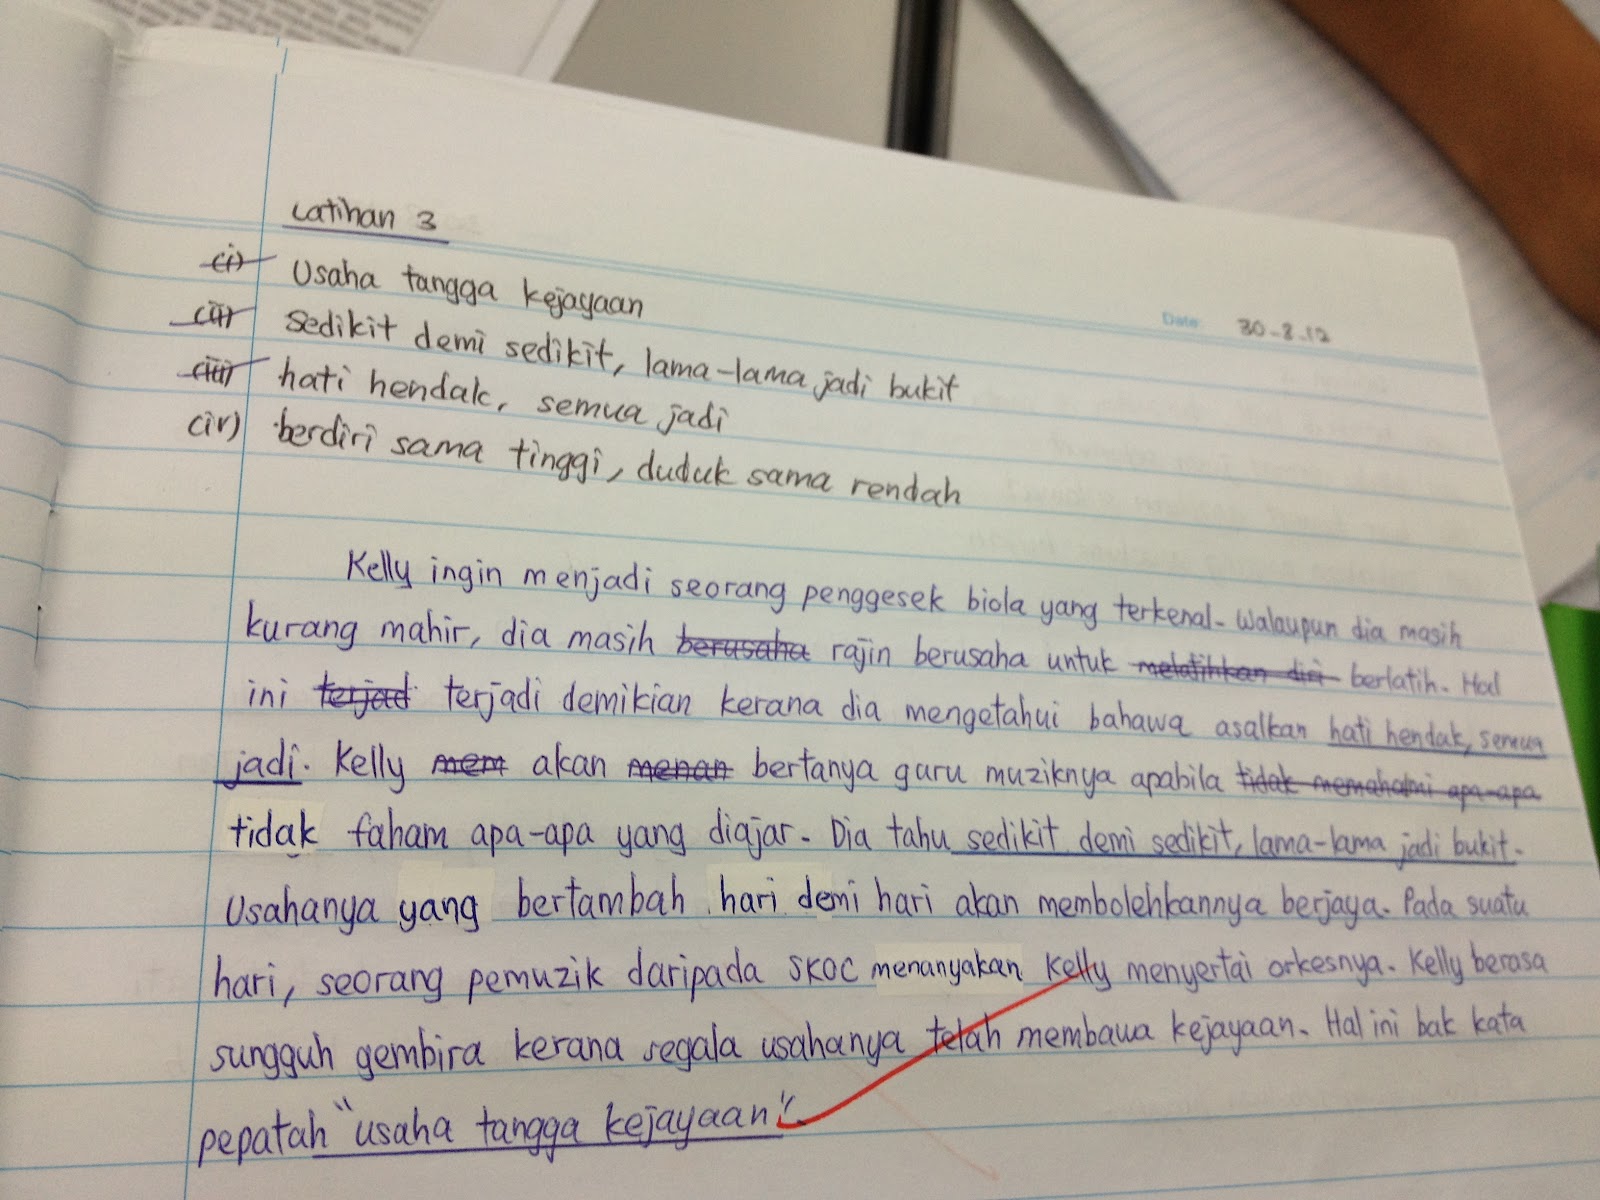 Latihan 3
Date: 30-8-12
(i) Usaha tangga kejayaan
(ii) Sedikit demi sedikit, lama-lama jadi bukit
(iii) hati hendak, semua jadi
(iv) berdiri sama tinggi, duduk sama rendah
Kelly ingin menjadi seorang penggesek biola yang terkenal. Walaupun dia masih
kurang mahir, dia masih berusaha rajin berusaha untuk melatihkan diri berlatih. Hal
ini terjad terjadi demikian kerana dia mengetahui bahawa asalkan hati hendak, semua
jadi. Kelly mem akan menan bertanya guru muziknya apabila tidak memahami apa-apa
tidak faham apa-apa yang diajar. Dia tahu sedikit demi sedikit, lama-lama jadi bukit.
Usahanya yang bertambah hari demi hari akan membolehkannya berjaya. Pada suatu
hari, seorang pemuzik daripada SKOC menanyakan Kelly menyertai orkesnya. Kelly berasa
sungguh gembira kerana segala usahanya telah membawa kejayaan. Hal ini bak kata
pepatah "usaha tangga kejayaan".